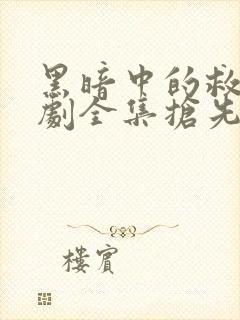 黑暗中的救
劇全集搶先
樓賓